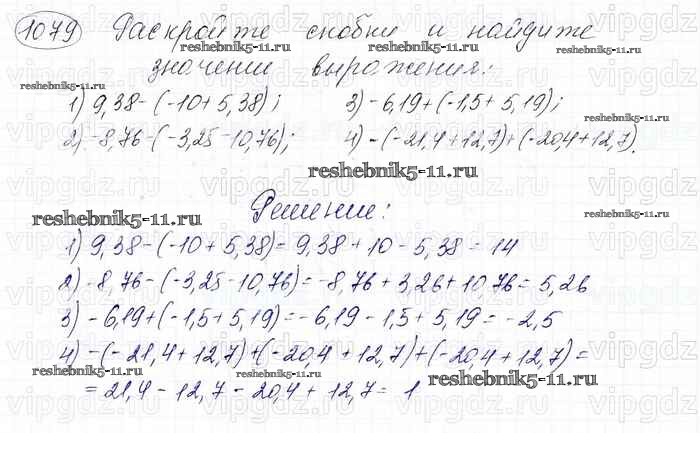 1079 Раскройте скобки и найдите
значение выражения:
1) 9,38-(-10+5,38); 3) -6,19+(-1,5+5,19);
2) -8,76-(-3,25-10,76); 4) -(-21,4+12,7)+(-20,4+12,7).
Решение:
1) 9,38-(-10+5,38)=9,38+10-5,38=14
2) -8,76-(-3,25-10,76)=-8,76+3,26+10,76=5,26
3) -6,19+(-1,5+5,19)=-6,19-1,5+5,19=-2,5
4) -(-21,4+12,7)+(-20,4+12,7)+(-20,4+12,7)=
=21,4-12,7-20,4+12,7=1
reshebnik5-11.ru
reshebnik5-11.ru
reshebnik5-11.ru
reshebnik5-11.ru
reshebnik5-11.ru
reshebnik5-11.ru
reshebnik5-11.ru
vipgdz.ru